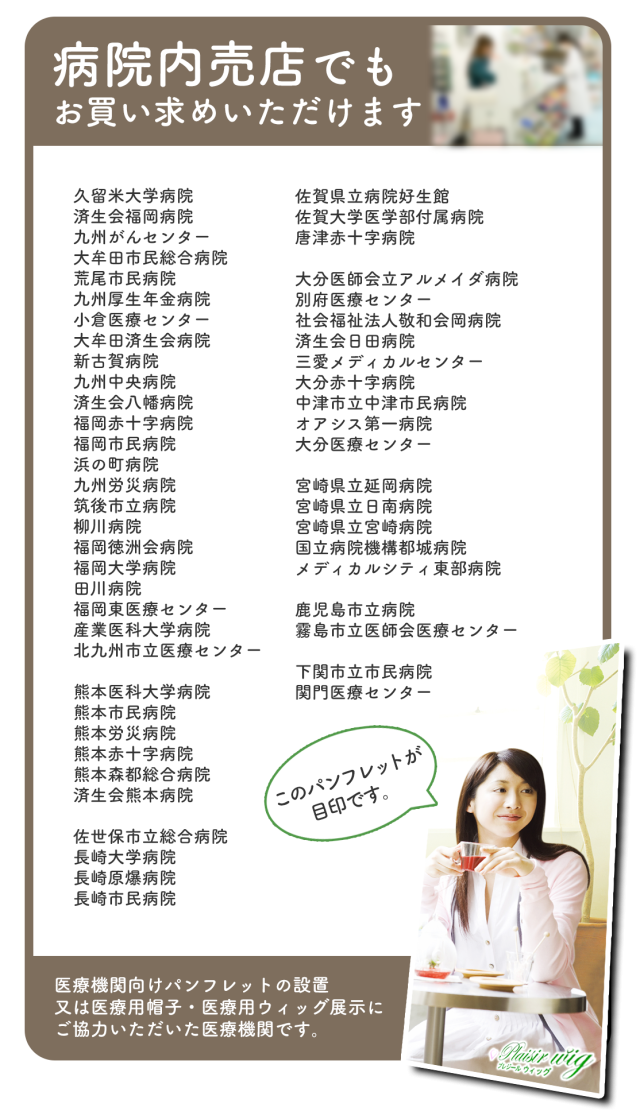 病院内売店でも
お買い求めいただけます
久留米大学病院
済生会福岡病院
九州がんセンター
大牟田市民総合病院
荒尾市民病院
九州厚生年金病院
小倉医療センター
大牟田済生会病院
新古賀病院
九州中央病院
済生会八幡病院
福岡赤十字病院
福岡市民病院
浜の町病院
九州労災病院
筑後市立病院
柳川病院
福岡徳洲会病院
福岡大学病院
田川病院
福岡東医療センター
産業医科大学病院
北九州市立医療センター
熊本医科大学病院
熊本市民病院
熊本労災病院
熊本赤十字病院
熊本森都総合病院
済生会熊本病院
佐世保市立総合病院
長崎大学病院
長崎原爆病院
長崎市民病院
佐賀県立病院好生館
佐賀大学医学部付属病院
唐津赤十字病院
大分医師会立アルメイダ病院
別府医療センター
社会福祉法人敬和会岡病院
済生会日田病院
三愛メディカルセンター
大分赤十字病院
中津市立中津市民病院
オアシス第一病院
大分医療センター
宮崎県立延岡病院
宮崎県立日南病院
宮崎県立宮崎病院
国立病院機構都城病院
メディカルシティ東部病院
鹿児島市立病院
霧島市立医師会医療センター
下関市立市民病院
関門医療センター
このパンフレットが
目印です。
医療機関向けパンフレットの設置
又は医療用帽子・医療用ウィッグ展示に
ご協力いただいた医療機関です。
Plaisir wig
プレジールウィッグ